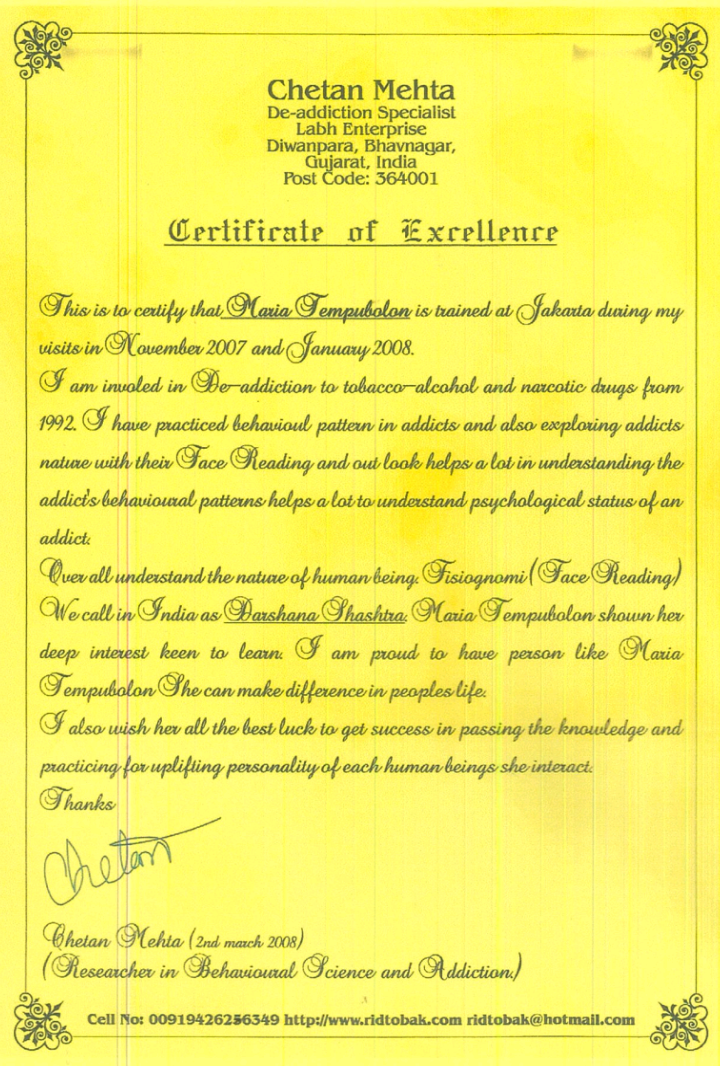 Chetan Mehta
De-addiction Specialist
Labh Enterprise
Diwanpara, Bhavnagar,
Gujarat, India
Post Code: 364001
Certificate of Excellence
This is to certify that Maria Tempubolon is trained at Jakarta during my
visits in November 2007 and January 2008.
I am involed in De-addiction to tobacco-alcohol and narcotic drugs from
1992. I have practiced behavioul pattern in addicts and also exploring addicts
nature with their Face Reading and out look helps a lot in understanding the
addict's behavioural patterns helps a lot to understand psychological status of an
addict.
Over all understand the nature of human being. Fisiognomi (Face Reading)
We call in India as Darshana Shashtra. Maria Tempubolon shown her
deep interest keen to learn. I am proud to have person like Maria
Tempubolon She can make difference in peoples life.
I also wish her all the best luck to get success in passing the knowledge and
practicing for uplifting personality of each human beings she interact.
Thanks
Chetan
Chetan Mehta (2nd march 2008)
(Researcher in Behavioural Science and Addiction.)
Cell No: 00919426256349 http://www.ridtobak.com ridtobak@hotmail.com